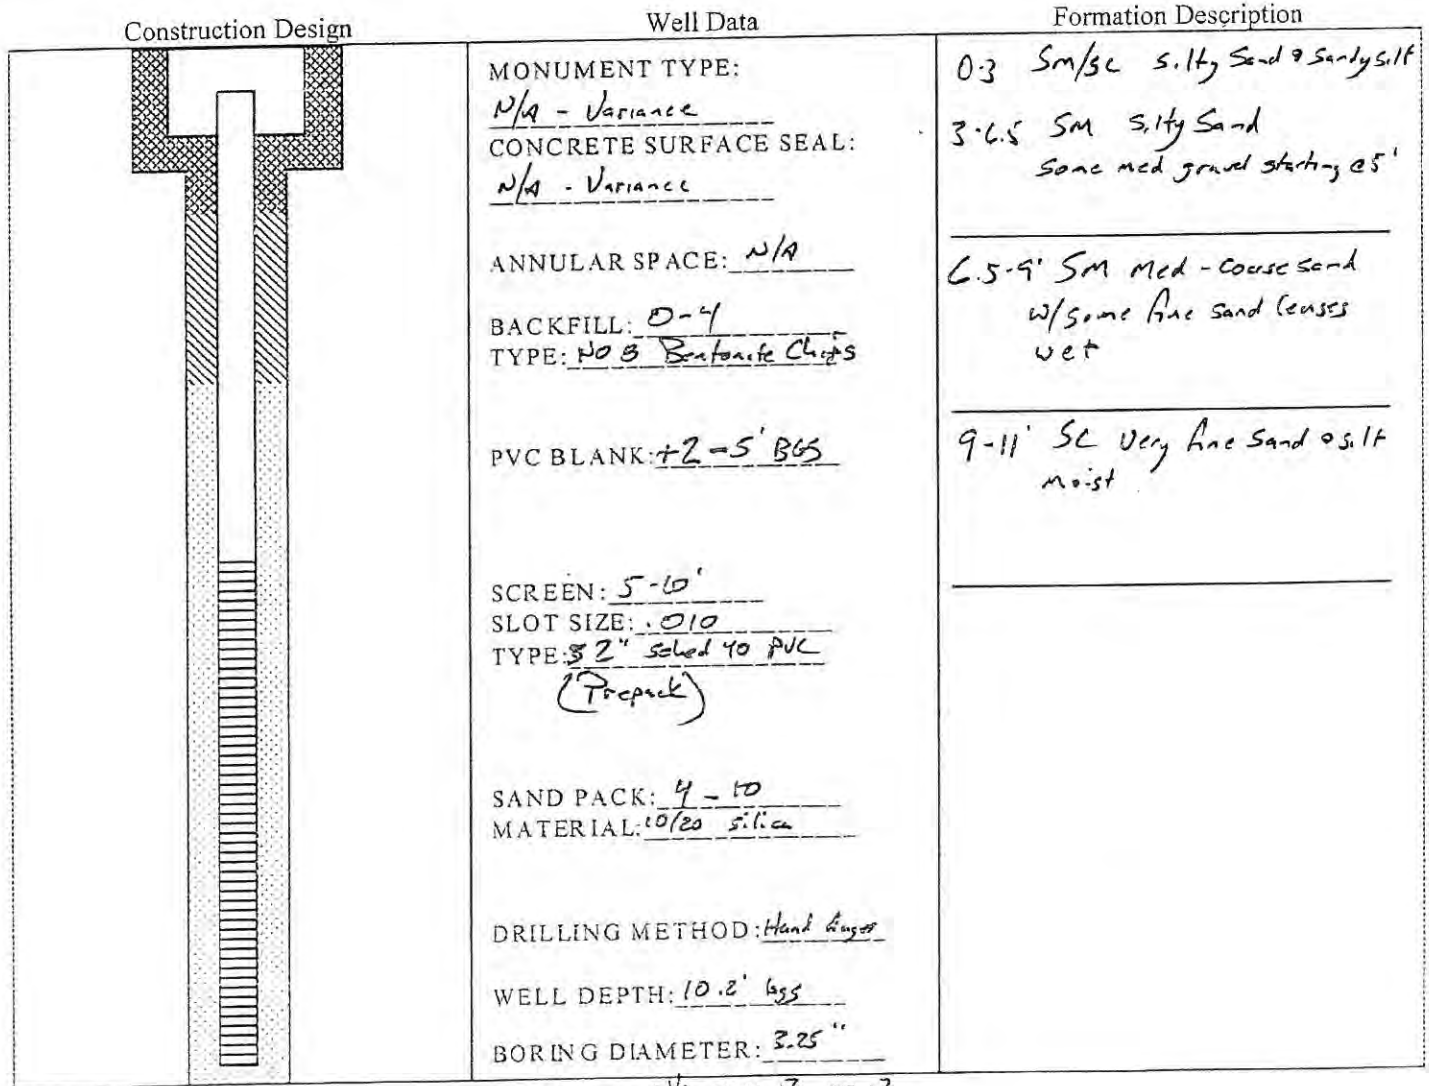 Construction Design
Well Data
Formation Description
MONUMENT TYPE:
N/A - Variance
CONCRETE SURFACE SEAL:
N/A - Variance
ANNULAR SPACE: N/A
BACKFILL: 0-4
TYPE: NO 8 Bentonite Chips
PVC BLANK: +2-5' BGS
SCREEN: 5-10'
SLOT SIZE: .010
TYPE: 2" sched 40 PVC
(Prepack)
SAND PACK: 4-10
MATERIAL: 10/20 silica
DRILLING METHOD: Hand Auger
WELL DEPTH: 10.2' bgs
BORING DIAMETER: 3.25"
0-3 SM/SC Silty Sand & Sandy silt
3-6.5 SM Silty Sand
Some med gravel starting @5'
6.5-9' SM Med-Course sand
w/some fine sand lenses
wet
9-11' SC Very fine Sand & silt
moist